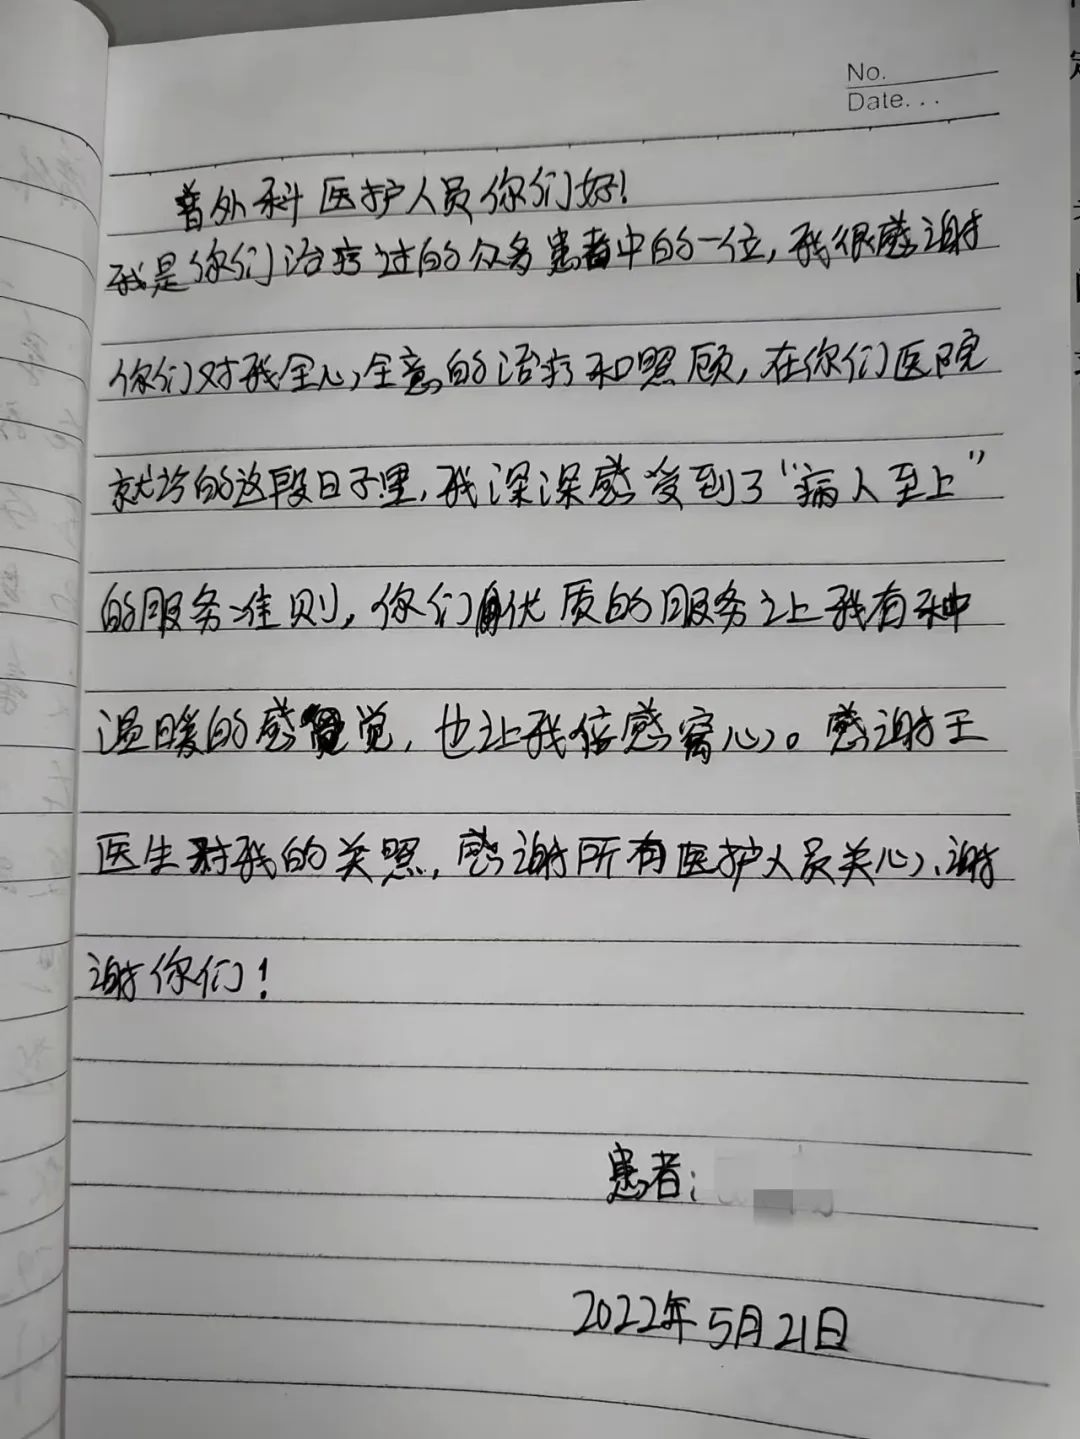 No.
Date...
普外科医护人员你们好!
我是你们治疗过的众多患者中的一位,我很感谢
你们对我全心全意的治疗和照顾,在你们医院
就诊的这段日子里,我深深感受到了“病人至上”
的服务准则,你们优质的服务让我有种
温暖的感觉,也让我倍感窝心。感谢王
医生对我的关照,感谢所有医护人员关心、谢
谢你们!
患者:
2022年5月21日